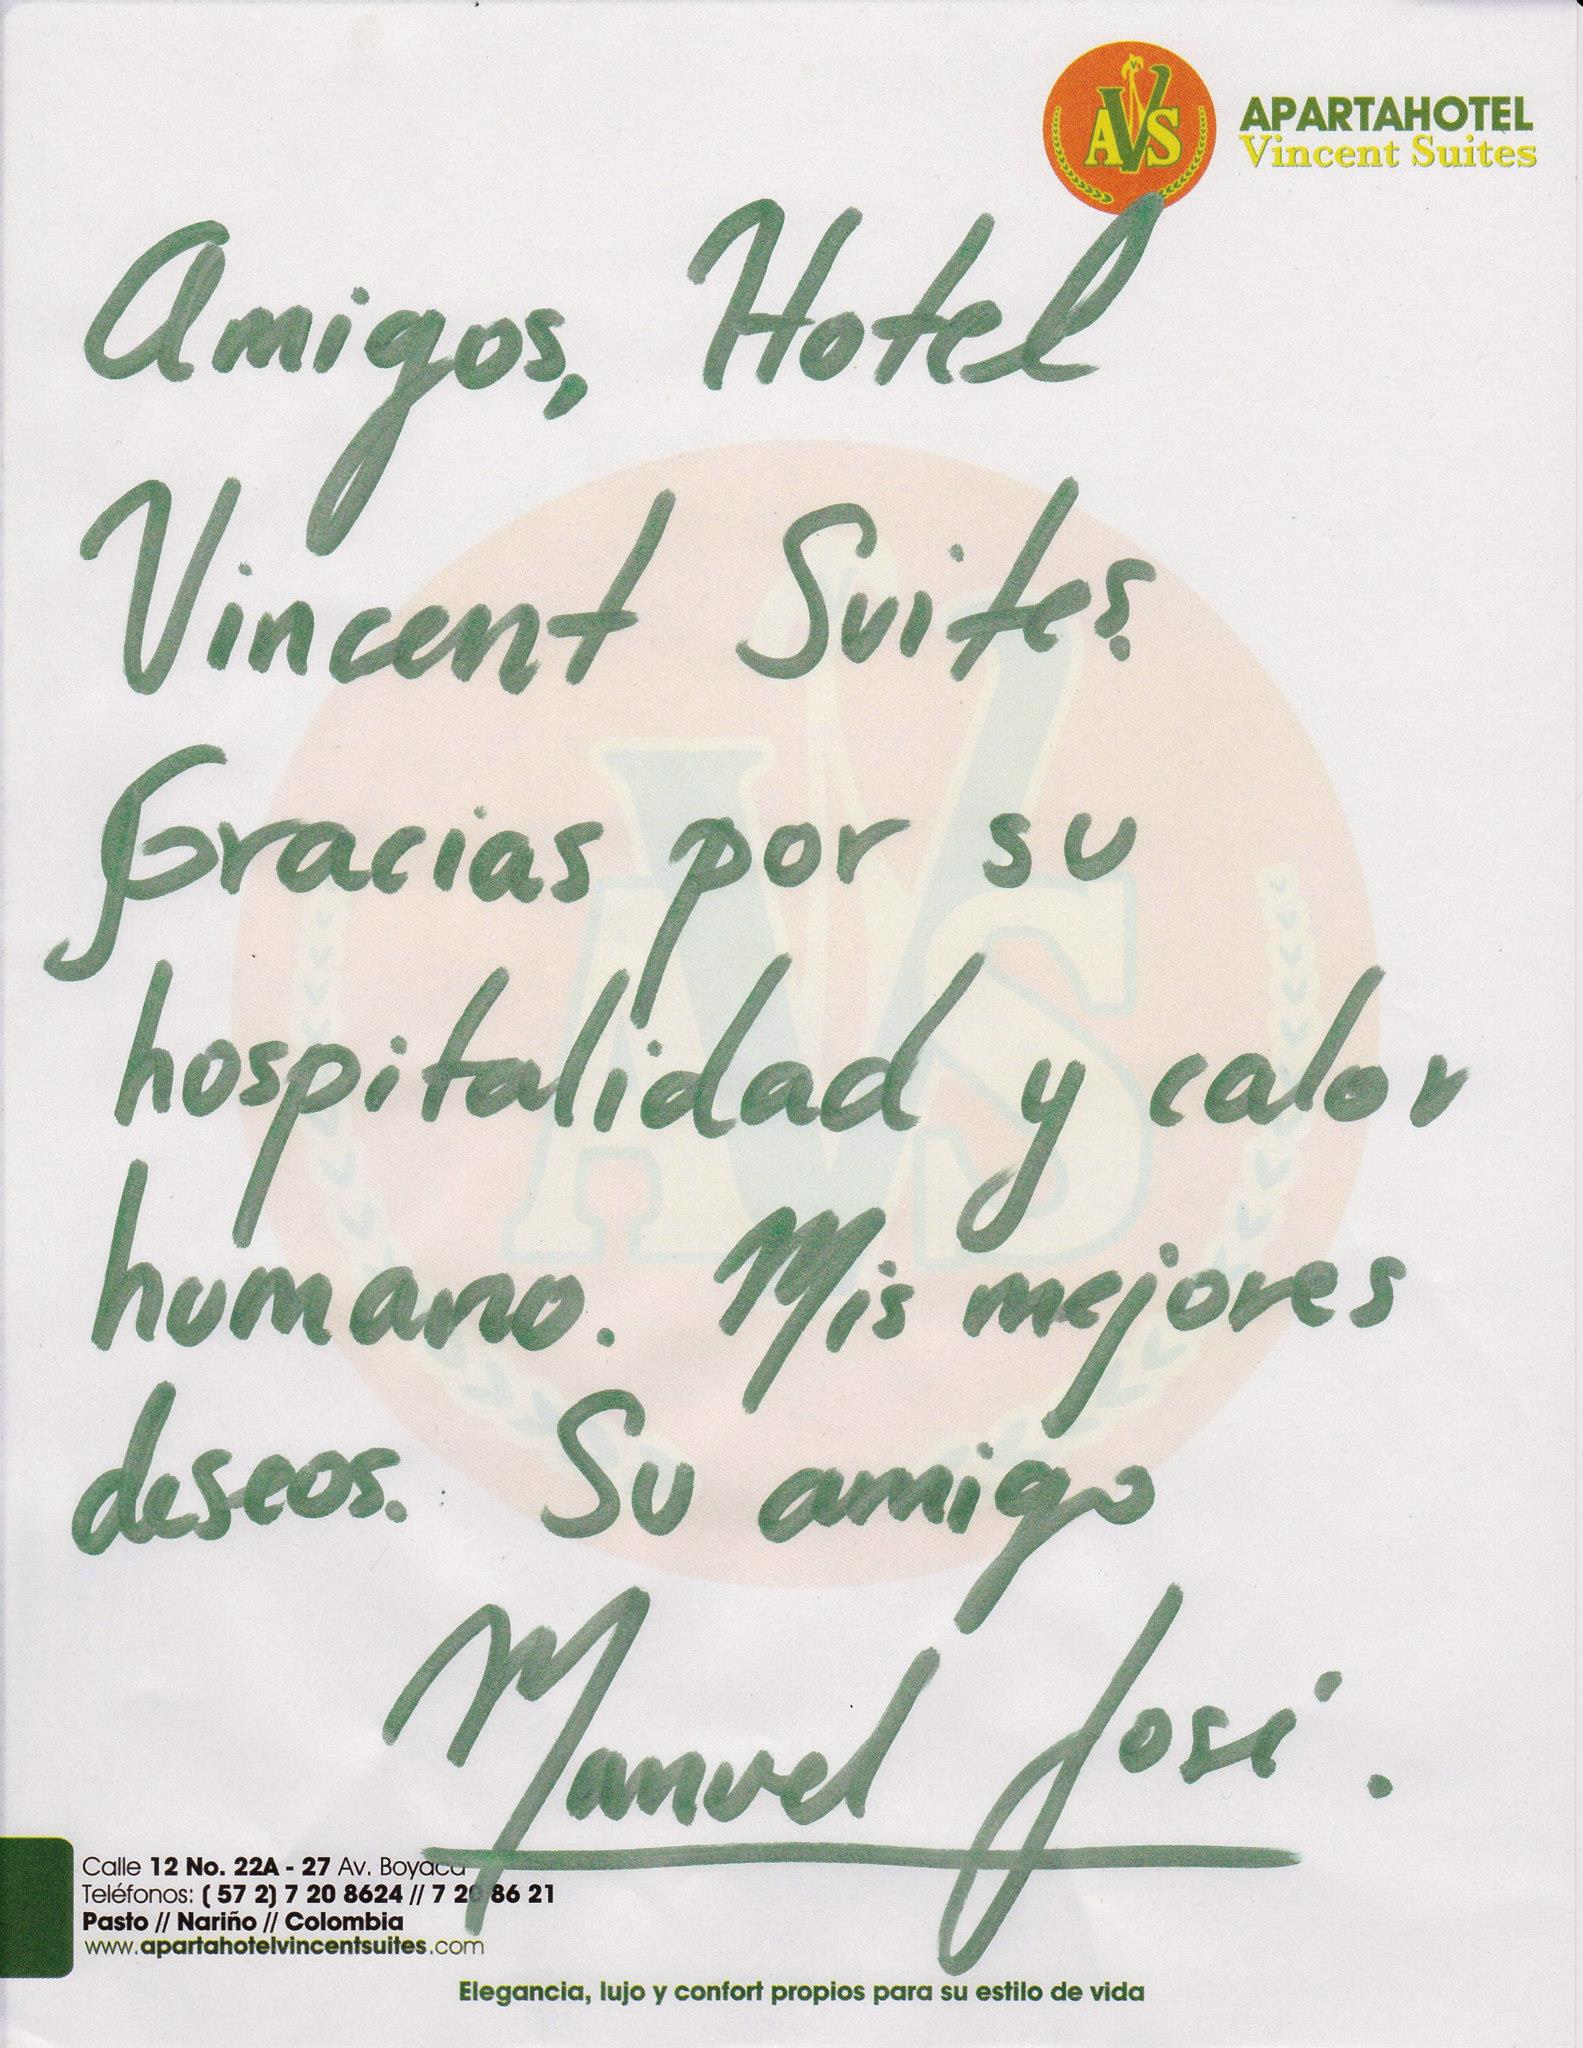 AVS
APARTAHOTEL
Vincent Suites
Amigos, Hotel
Vincent Suites.
Gracias por su
hospitalidad y calor
humano. Mis mejores
deseos. Su amigo
Manuel José.
Calle 12 No. 22A - 27 Av. Boyacá
Teléfonos: ( 57 2) 7 20 8624 // 7 20 86 21
Pasto // Nariño // Colombia
www.apartahotelvincentsuites.com
Elegancia, lujo y confort propios para su estilo de vida